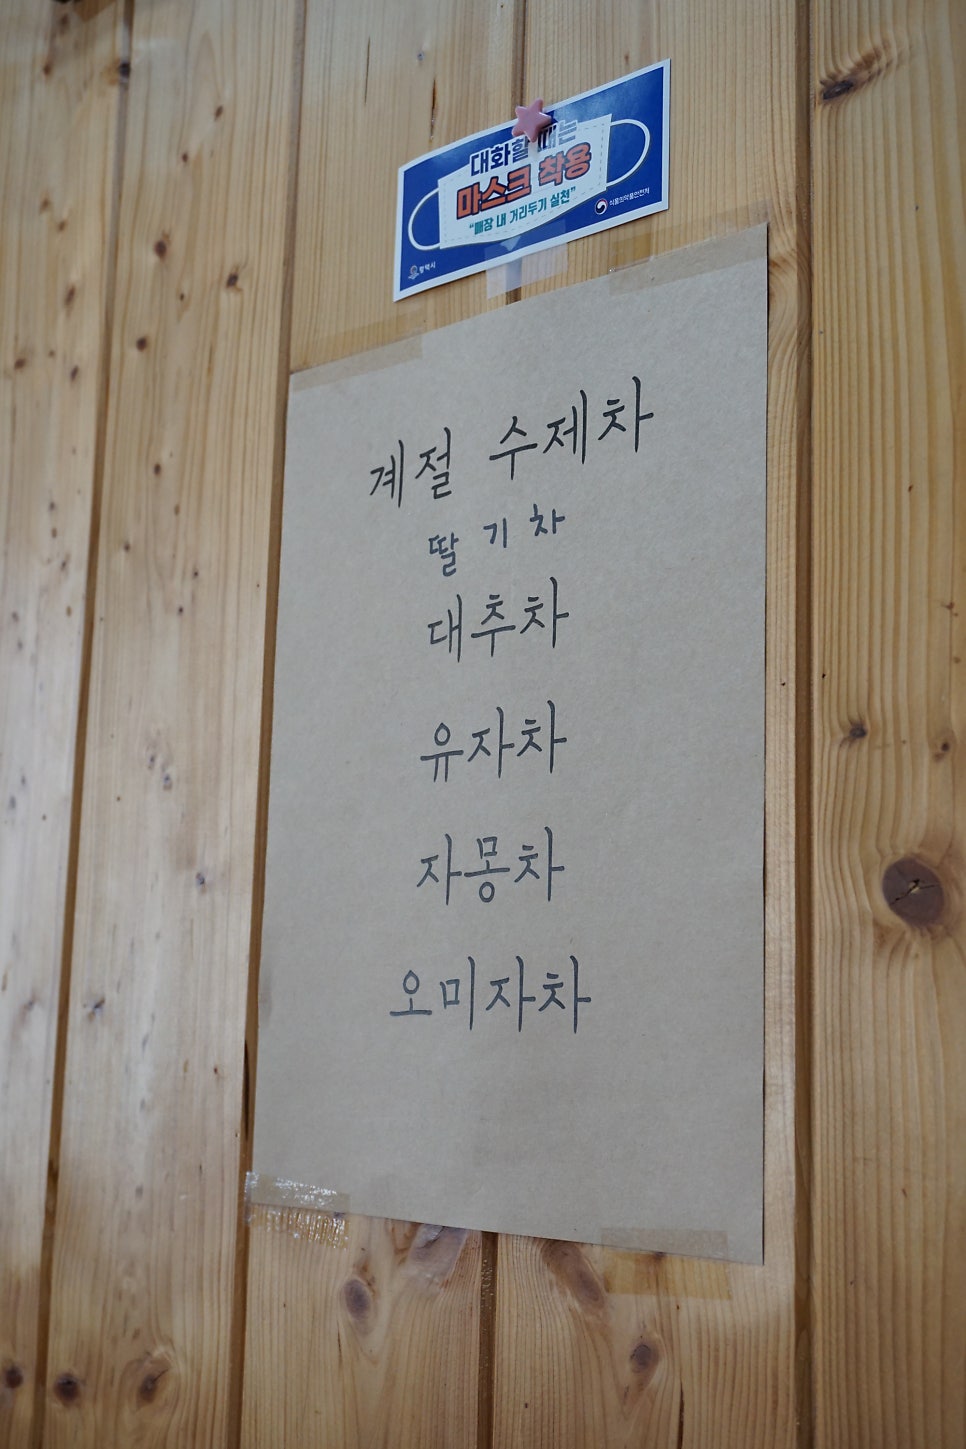 대화할 때는
마스크 착용
"매장 내 거리두기 실천"
식품의약품안전처
평택시
계절 수제차
딸기차
대추차
유자차
자몽차
오미자차